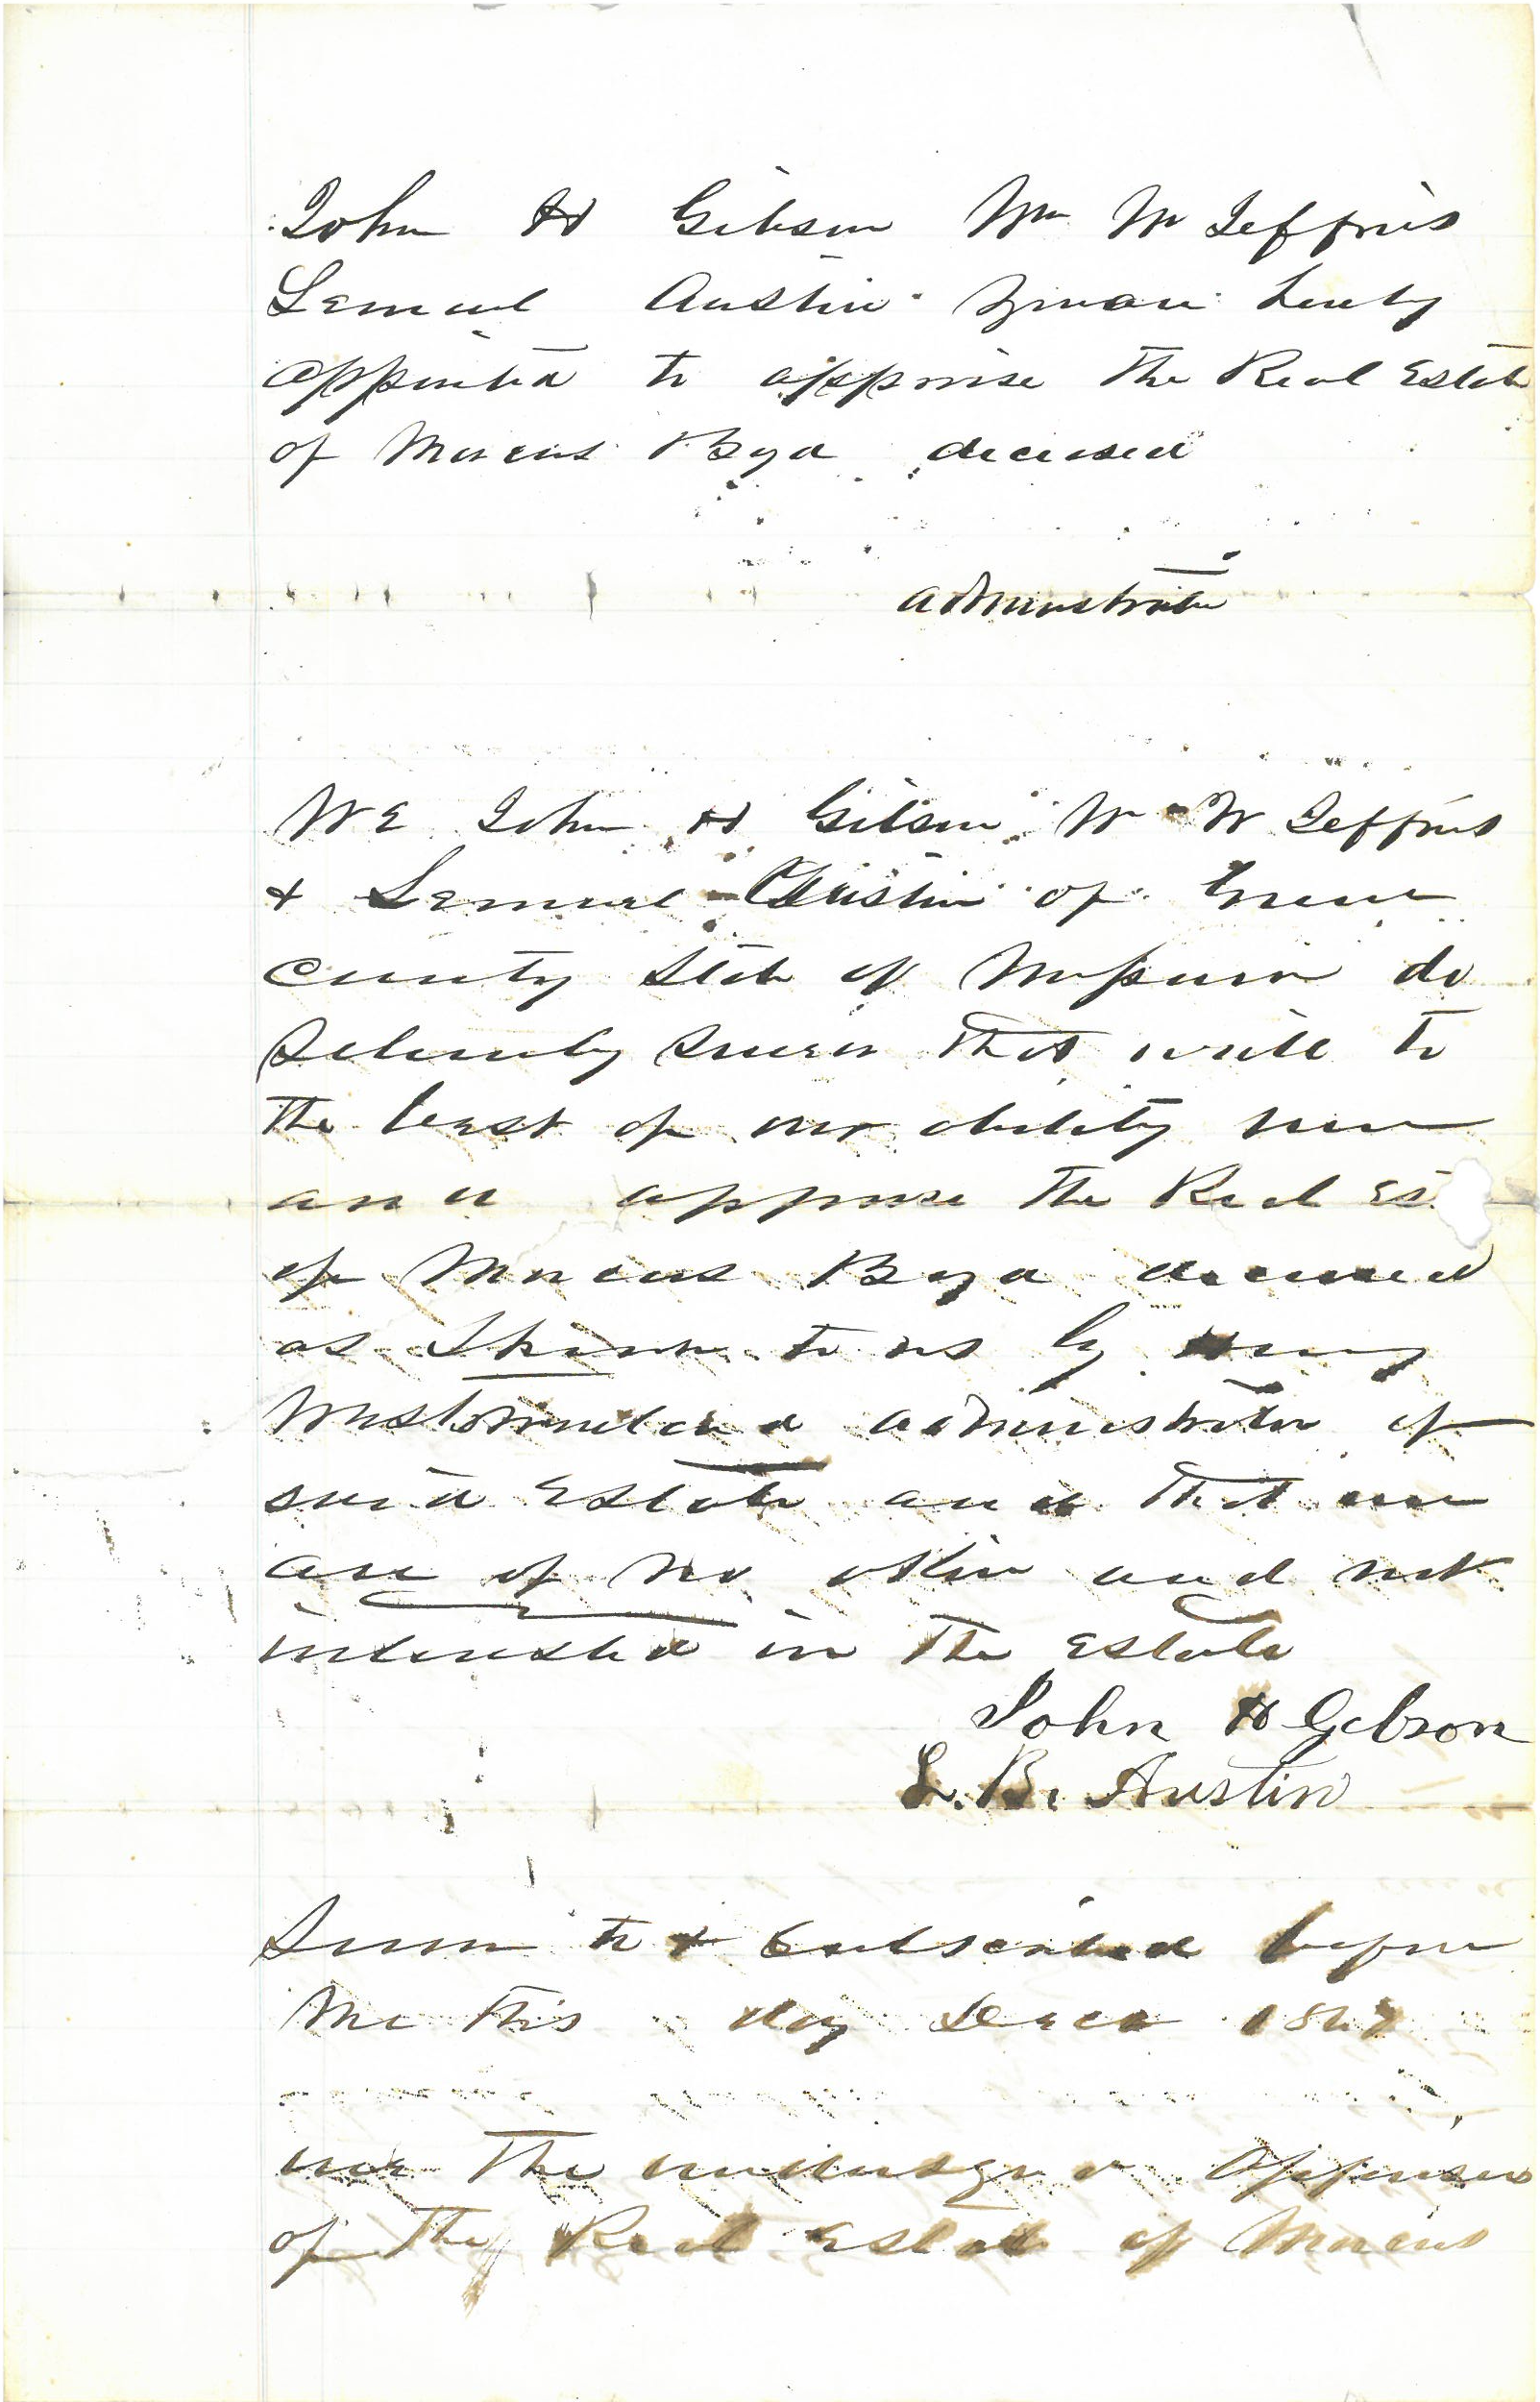 John H Gibson Wm W Jeffries
Lemuel Austin You are hereby
appointed to appraise the Real Estate
of Marcus Boyd deceased
administrator
We John H Gibson Wm W Jeffries
& Lemuel Austin of Greene
County State of Missouri do
Solemnly Swear that will to
the best of our ability view
and appraise the Real Es
of Marcus Boyd deceased
as Shown to us by
administrator of
said Estate and that we
are of no Kin and not
interested in the Estate
John H Gibson
L. B. Austin
Sworn to & Subscribed before
me this day 186
we the undersigned appraisers
of the Real Estate of Marcus